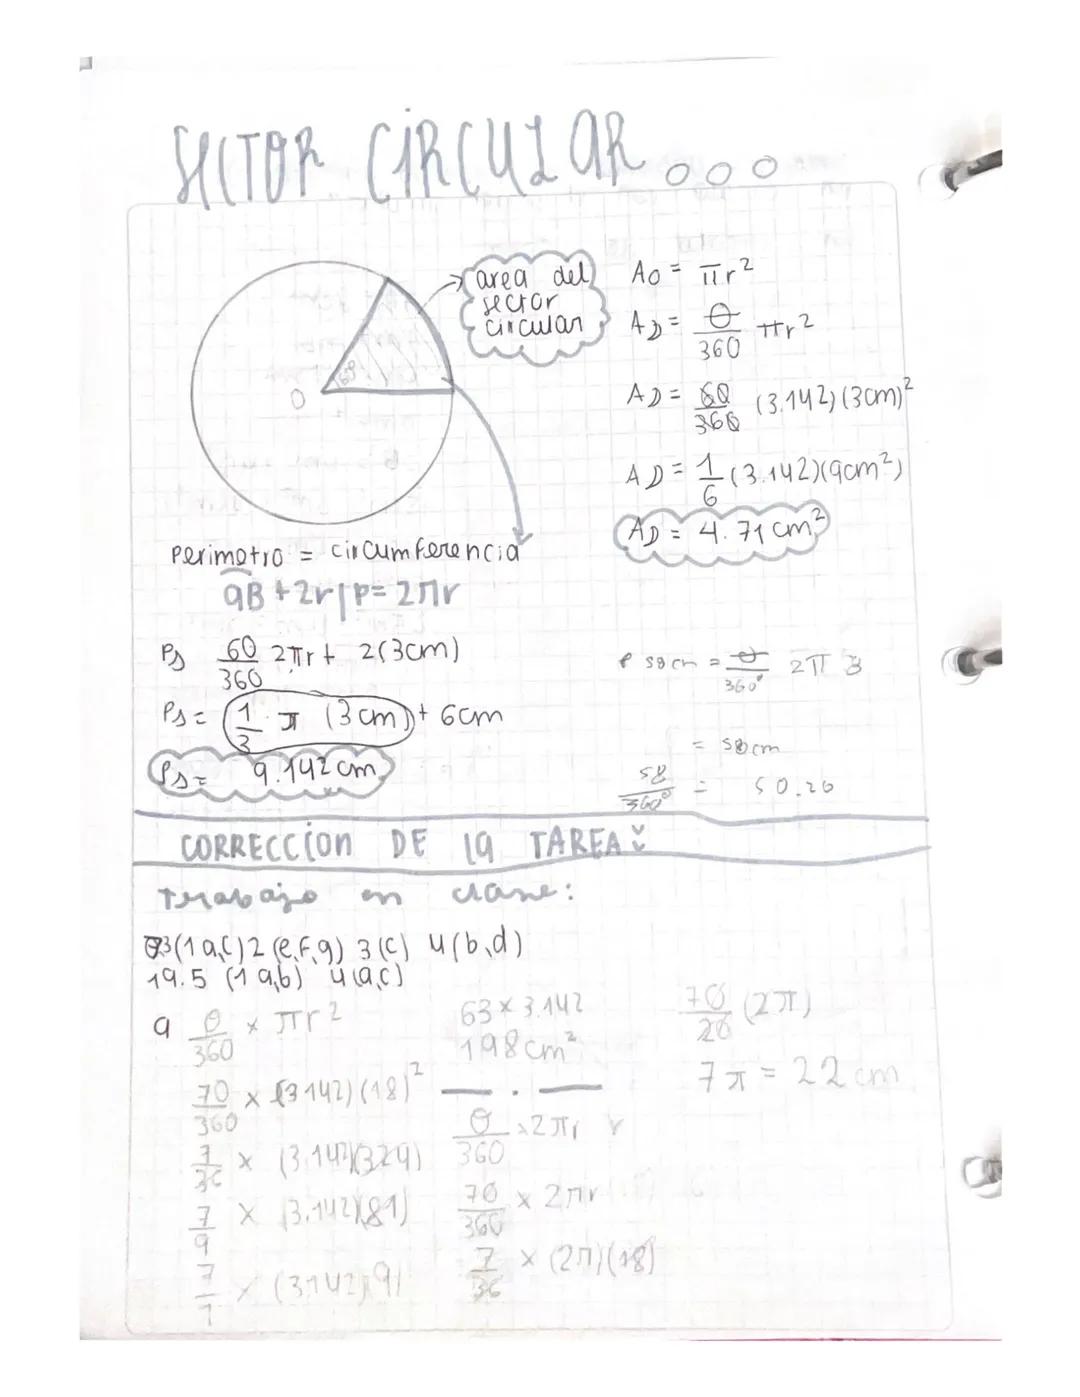 SECTOR CIRCULAR...
area del
sector
circular
60°
O
A○ = πr²
AD = θ/360 πr²
AD = 60/360 (3.142)(3cm)²
AD = 1/6 (3.142)(9cm²)
AD = 4.71 cm²
Perimetro = circumferencia
aB + 2r | P = 2πr
Ps 60/360 2πr + 2(3cm)
Ps = 1/3 · π (3cm) + 6cm
Ps = 9.142 cm
58 cm = θ/360° 2π 3
= 58 cm
58/360° = 50.26
CORRECCION DE la TAREA
Trabajo en clase:
(1a,c) 2(e,f,g) 3(c) 4(b,d)
19.5 (1a,b) 4(a,c)
a θ/360 × πr²
70/360 × (3.142)(18)²
7/36 × (3.142)(324)
7/9 × (3.142)(81)
7/1 × (3.142)(9)
63 × 3.142
198 cm²
θ/360 × 2πr
70/360 × 2πr
7/36 × (2π)(18)
70/20 (2π)
7π = 22 cm